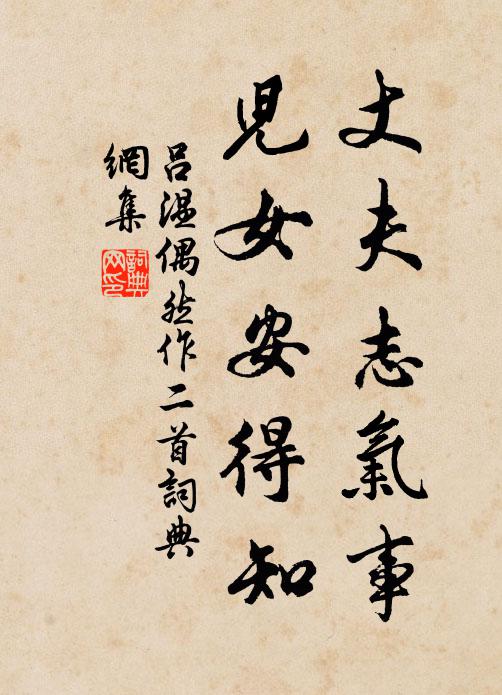 丈夫志氣事
兒女安得知
呂温偶然作二首詞典
網集
詞典
网印